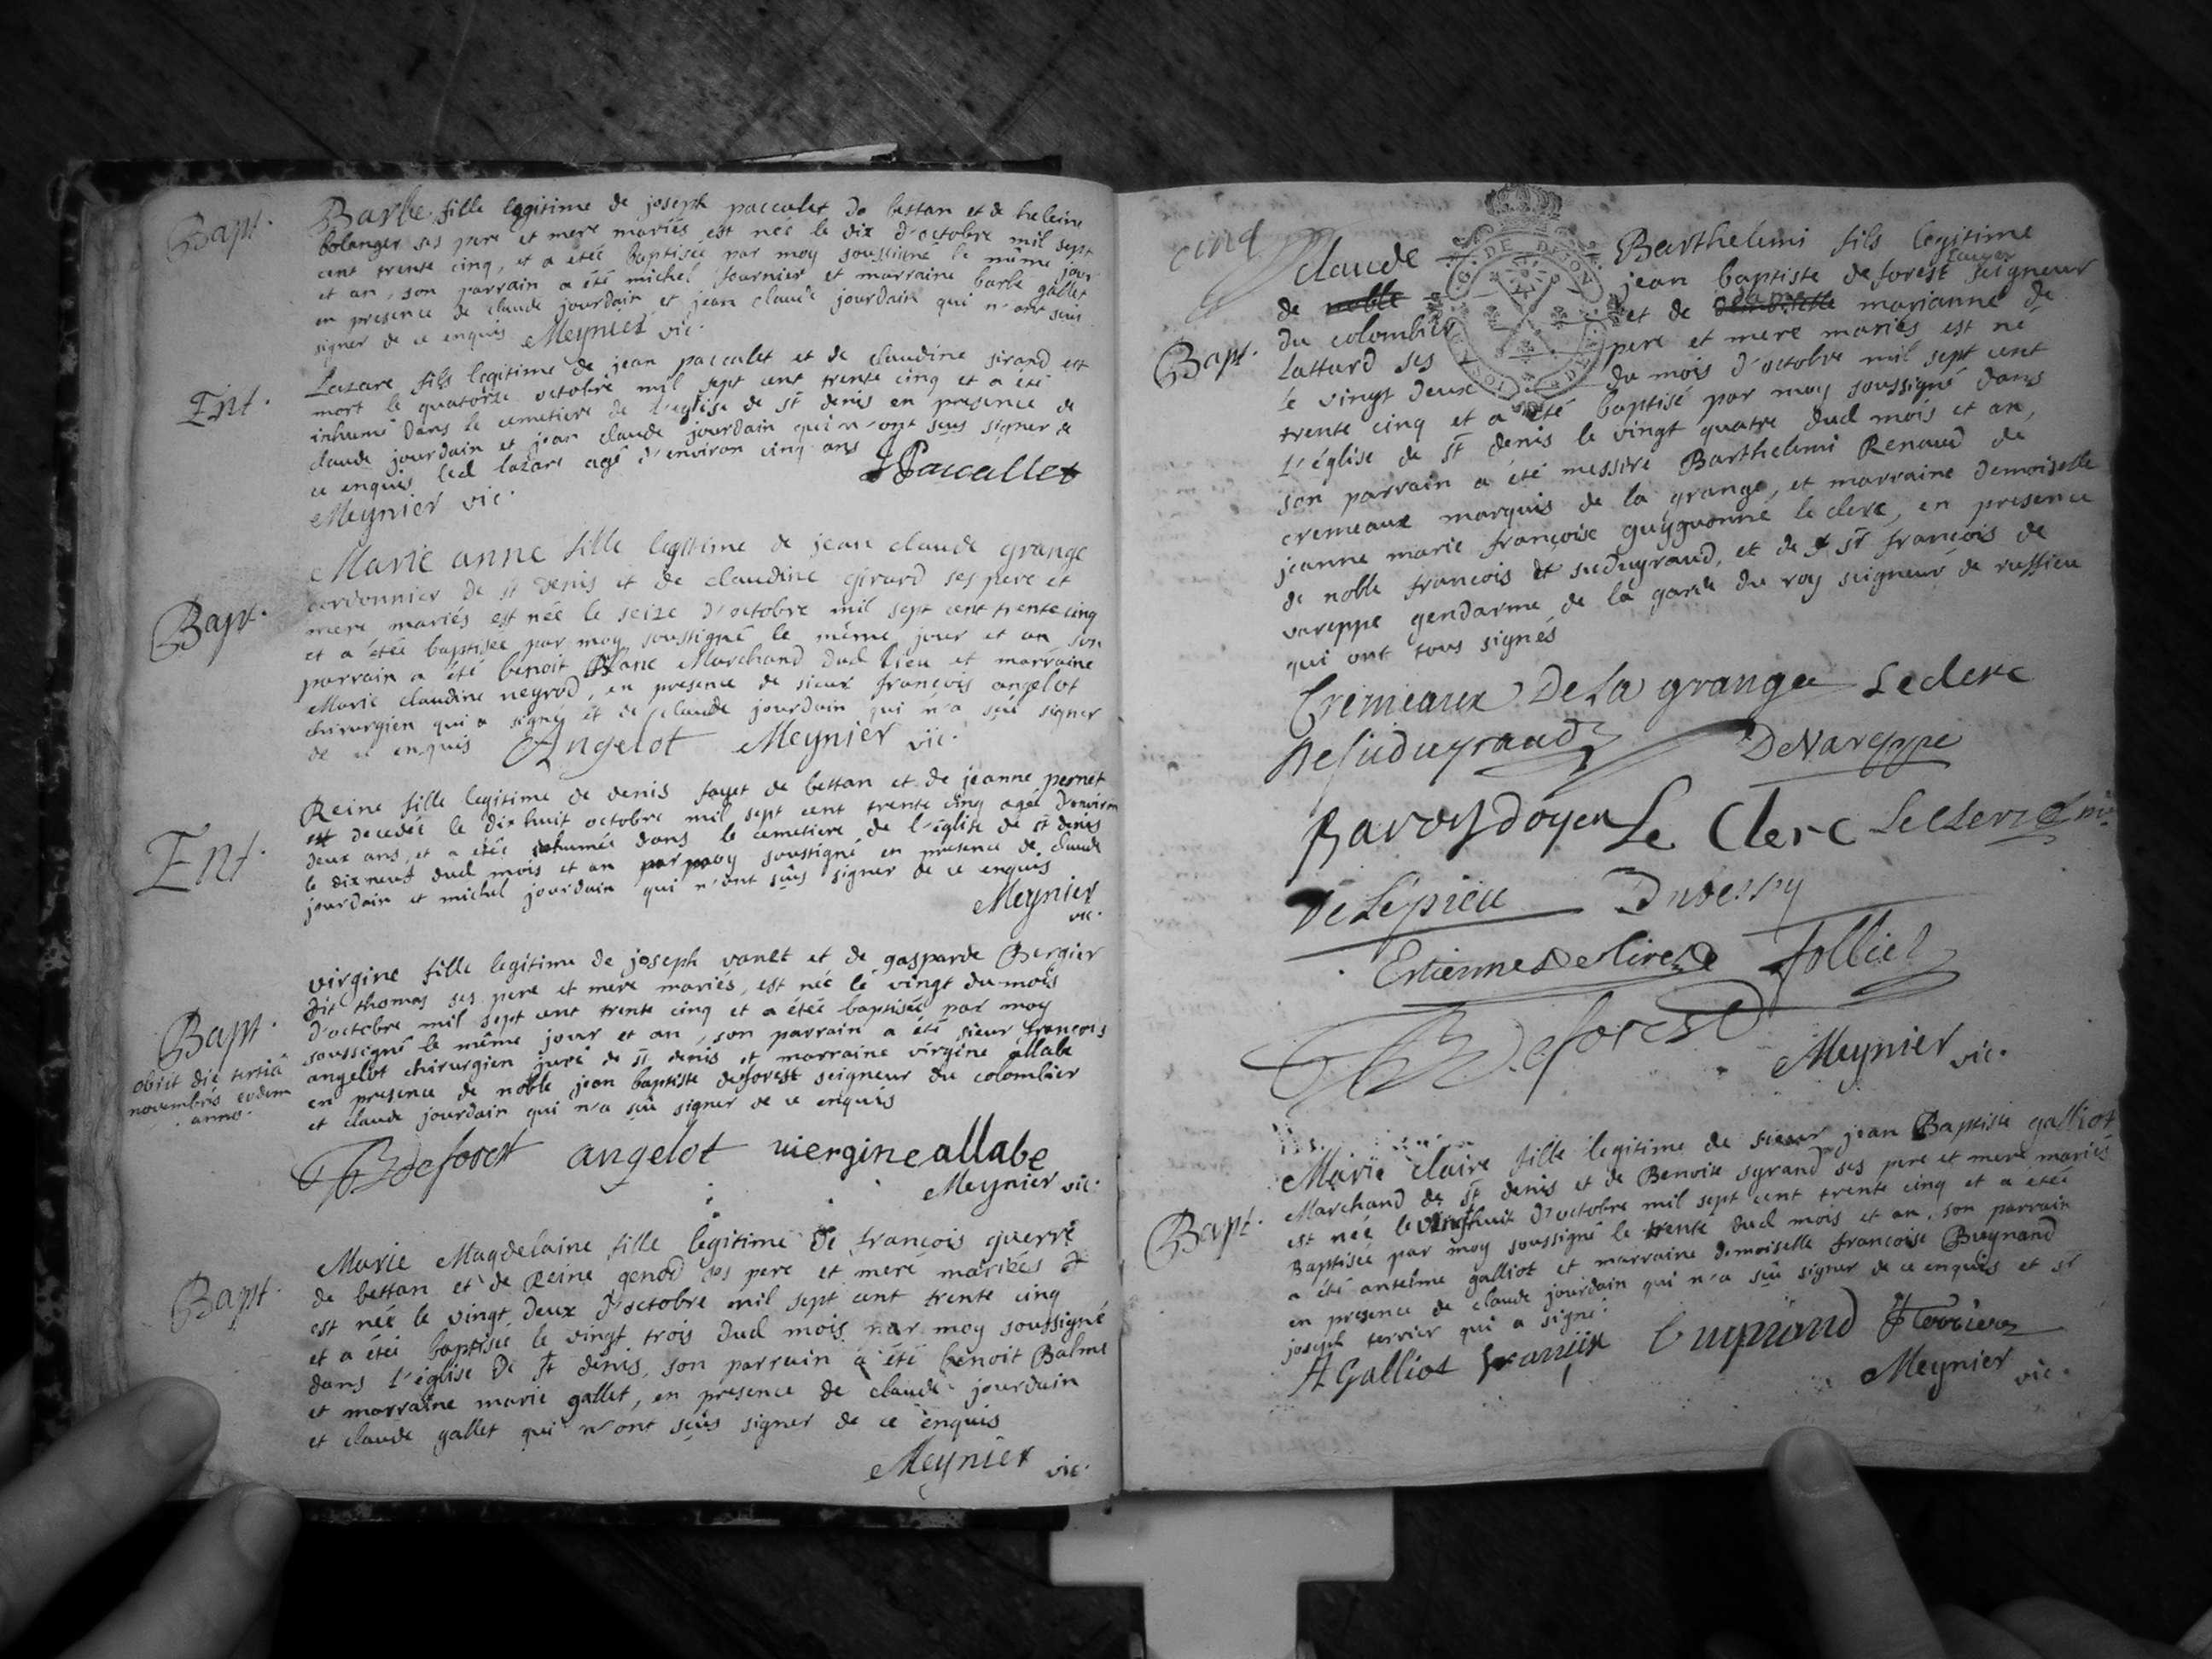 Bapt.
Barbe fille legitime de joseph paccalet de bettan et de heleine
bolanger ses pere et mere mariés est née le dix d'octobre mil sept
cent trente cinq, et a étéé baptisée par moy soussigné le même jour
et an, son parrain a été michel fournier et marraine barbe gallet
en presence de claude jourdain et jean claude jourdain qui n'ont seus
signer de ce enquis Meynier vic.
Ent.
Lazare fils legitime de jean paccalet et de claudine sirand est
mort le quatorze octobre mil sept cent trente cinq et a été
inhumé dans le cemetiere de l'eglise de st denis en presence de
claude jourdain et jean claude jourdain qui n'ont seus signer de
ce enquis led lazare agé d'environ cinq ans
Paccallet
Meynier vic.
Bapt.
Marie anne fille legitime de jean claude grange
cordonnier de st denis et de claudine girard ses pere et
mere mariés est née le seize d'octobre mil sept cent trente cinq
et a étéé baptisée par moy soussigné le même jour et an son
parrain a été benoit Blanc Marchand dud lieu et marraine
Marie claudine neyrod, en presence de sieur françois angelot
chirurgien qui a signé et de claude jourdain qui n'a seu signer
de ce enquis Angelot Meynier vic.
Ent.
Reine fille legitime de denis fayet de bettan et de jeanne pernet
est decedée le dix huit octobre mil sept cent trente cinq agée d'environ
deux ans, et a étéé inhumée dans le cemetiere de l'église de st denis
le dix neuf dud mois et an par moy soussigné en presence de claude
jourdain et michel jourdain qui n'ont seus signer de ce enquis
Meynier
vic.
Bapt.
obiit die tertiâ
novembris eodem
anno.
virgine fille legitime de joseph vanet et de gasparde Bergier
dit thomas ses pere et mere mariés, est née le vingt du mois
d'octobre mil sept cent trente cinq et a étéé baptisée par moy
soussigné le même jour et an, son parrain a été sieur françois
angelot chirurgien juré de st denis et marraine virgine allabe
en presence de noble jean baptiste deforest seigneur du colombier
et claude jourdain qui n'a seu signer de ce enquis
deforest angelot viergine allabe
Meynier vic.
Bapt.
Marie Magdelaine fille legitime de françois guerre
de bettan et de Reine genod ses pere et mere mariés
est née le vingt deux d'octobre mil sept cent trente cinq
et a étéé baptisée le vingt trois dud mois par moy soussigné
dans l'église de st denis, son parrain a été benoit Balme
et marraine marie gallet, en presence de claude jourdain
et claude gallet qui n'ont seus signer de ce enquis
Meynier vic.
cinq
Bapt.
G. DE DIJON
Claude Barthelemi fils legitime
de noble jean baptiste deforest seigneur
du colombier et de demoiselle marianne de
lattard ses pere et mere mariés est né
le vingt deux du mois d'octobre mil sept cent
trente cinq et a été baptisé par moy soussigné dans
l'église de st denis le vingt quatre dud mois et an,
son parrain a été messire Barthelemi Renaud de
cremeaux marquis de la grange, et marraine demoiselle
jeanne marie françoise guygnonne le clerc, en presence
de noble francois de sudugraud, et de st françois de
vareppe gendarme de la garde du roy seigneur de russieu
qui ont tous signés
Cremeaux De La grange Leclerc
DeVareppe
Le Clerc
Deforest
Meynier vic.
Bapt.
Marie Claire fille legitime de sieur jean Baptiste galliot
Marchand de st denis et de Benoite syrand ses pere et mere mariés
est née le vingt huit d'octobre mil sept cent trente cinq et a étéé
Baptisée par moy soussigné le trente dud mois et an, son parrain
a été antelme galliot et marraine demoiselle francoise Bugnand
en presence de claude jourdain qui n'a seu signer de ce enquis et sr
joseph terrier qui a signé.
A Galliot
Meynier vic.